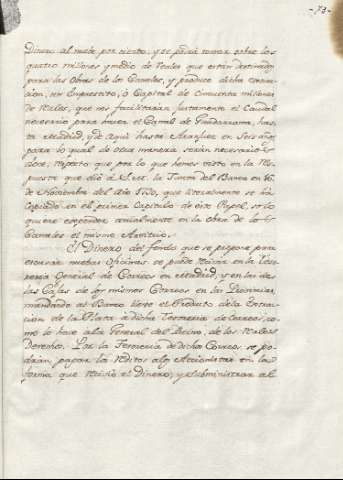 -73-
Dinero al siete por ciento, y se podrá tomar sobre los
quatro millones y medio de reales que están destinados
para las Obras de los Canales, y produce dicha extrac-
cion, un Emprestito, ó Capital de Cinquenta millones
de reales, que nos facilitarán justamente el Caudal
necesario para hacer el Canal de Guadarrama, has-
ta Madrid, y de aqui hasta Aranjuez en seis años
para lo qual de otra manera serán necesarios
doce, respecto que por lo que hemos visto en la Res-
puesta que dió á S. la Junta del Banco en 16
de Noviembre del Año que literalmente se há
copiado en el primer Capitulo de este Papel, se lo
quiere expender anualmente en la obra de los
Canales el mismo Arvitrio.
El Dinero del fondo que se propone para
evacuar nuebas Oficinas se puede recivir en la Teso-
reria General de Correos en Madrid, y en las de
las Caxas de los mismos Correos en las Provincias
mandando al Banco lleve el Producto de la Extrac-
cion de la Plata á dicha Tesoreria de Correos, co-
mo lo hace á la General del Reino, de los Reales
Derechos. Por la Tesoreria de dicha Correos se po-
drán pagar los reditos á los Accionistas en la
forma que recivió el Dinero, y subministrar al